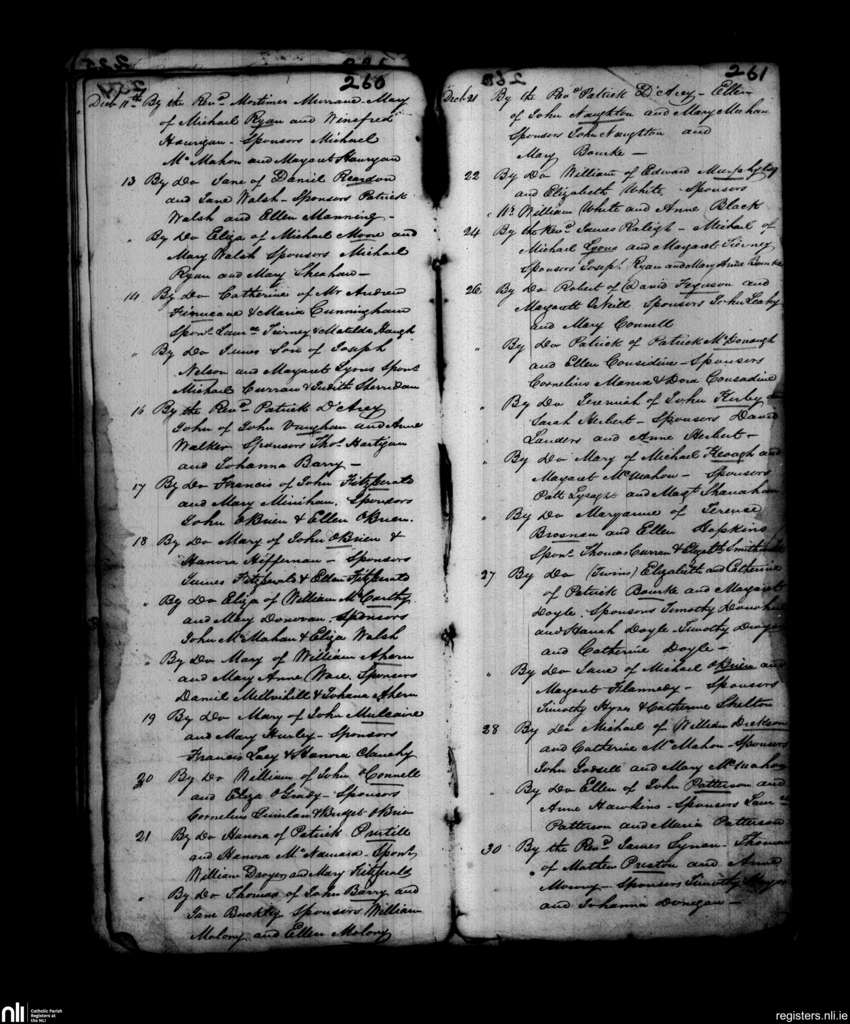 260
Decb 11th By the Revd Mortimer Murrane Mary
of Michael Ryan and Winefred
Hourigan - Sponsors Michael
McMahon and Margaret Hourigan
13 By Do Jane of Daniel Reardon
and Jane Walsh - Sponsors Patrick
Walsh and Ellen Manning -
" By Do Eliza of Michael Moore and
Mary Walsh Sponsors Michael
Ryan and Mary Sheehan -
14 By Do Catherine of Mr Andrew
Finucane & Maria Cunningham
Sponrs Laurce Tierney & Matilda Haugh
" By Do James Son of Joseph
Nelson and Margaret Lyons Sponrs
Michael Curran & Judith Sherridan
16 By the Revd Patrick D'Arcy
John of John Vaughan and Anne
Walker Sponsors Thos Hartigan
and Johanna Barry -
17 By Do Francis of John Fitzgerald
and Mary Minihan. Sponsors
John OBrien & Ellen OBrien.
18 By Do Mary of John OBrien &
Hanora Heffernan - Sponsors
James Fitzgerald & Ellen Fitzgerald
" By Do Eliza of William McCarthy
and Mary Donovan. Sponsors
John McMahon & Eliza Walsh
" By Do Mary of William Ahern
and Mary Anne Ware. Sponsors
Daniel Mellvihill & Johana Ahern
19 By Do Mary of John Mulcaire
and Mary Hurley - Sponsors
Francis Lacy & Hanora Clanchy
20 By Do William of John OConnell
and Eliza OGrady - Sponsors
Cornelius Quinlan & Bridget OBrien
21 By Do Hanora of Patrick
and Hanora McNamara - Sponrs
William Dwyer and Mary Fitzgerald
" By Do Thomas of John Barry and
Jane Buckley Sponsors William
Molony and Ellen Molony
261
Decb 21 By the Revd Patrick D'Arcy - Ellen
of John Naughton and Mary Meehan
Sponsors John Naughton and
Mary Bourke -
22 By Do William of Edward
and Elizabeth White Sponsors
Wm William White and Anne Black
24 By the Revd James Raleigh - Michael of
Michael Lyons and Margaret Tierney
Sponsors Joseph Ryan and Mary Anne
26 By Do Robert of David Ferguson and
Margarett Sponsors John Leahy
and Mary Connell
" By Do Patrick of Patrick McDonough
and Ellen Considine - Sponsors
Cornelius & Dora Considine
" By Do Jeremiah of John Kirby &
Sarah Herbert - Sponsors David
Landers and Anne Herbert -
" By Do Mary of Michael Keough and
Margaret McMahon - Sponsors
Patt Lysaght and Magt Shanahan
" By Do Maryanne of Terence
Brosnan and Ellen Hopkins
Sponrs Thomas Curran & Elizath
27 By Do (Twins) Elizabeth and Catherine
of Patrick Bourke and Margaret
Doyle. Sponsors Timothy
and Hanah Doyle - Timothy Dwyer
and Catherine Doyle -
" By Do Jane of Michael OBrien and
Margaret Flannedy - Sponsors
Timothy Hynes & Catherine Skelton
28 By Do Michael of William Dickson
and Catherine McMahon - Sponsors
John Godsell and Mary McMahon
By Do Ellen of John Patterson and
Anne Hawkins - Sponsors
Patterson and Maria Patterson
30 By the Revd James Synan - Thomas
of Mathew Preston and Anne
Sponsors Timothy
and Johanna Donegan -
nli
Catholic Parish
Registers at
the NLI
registers.nli.ie